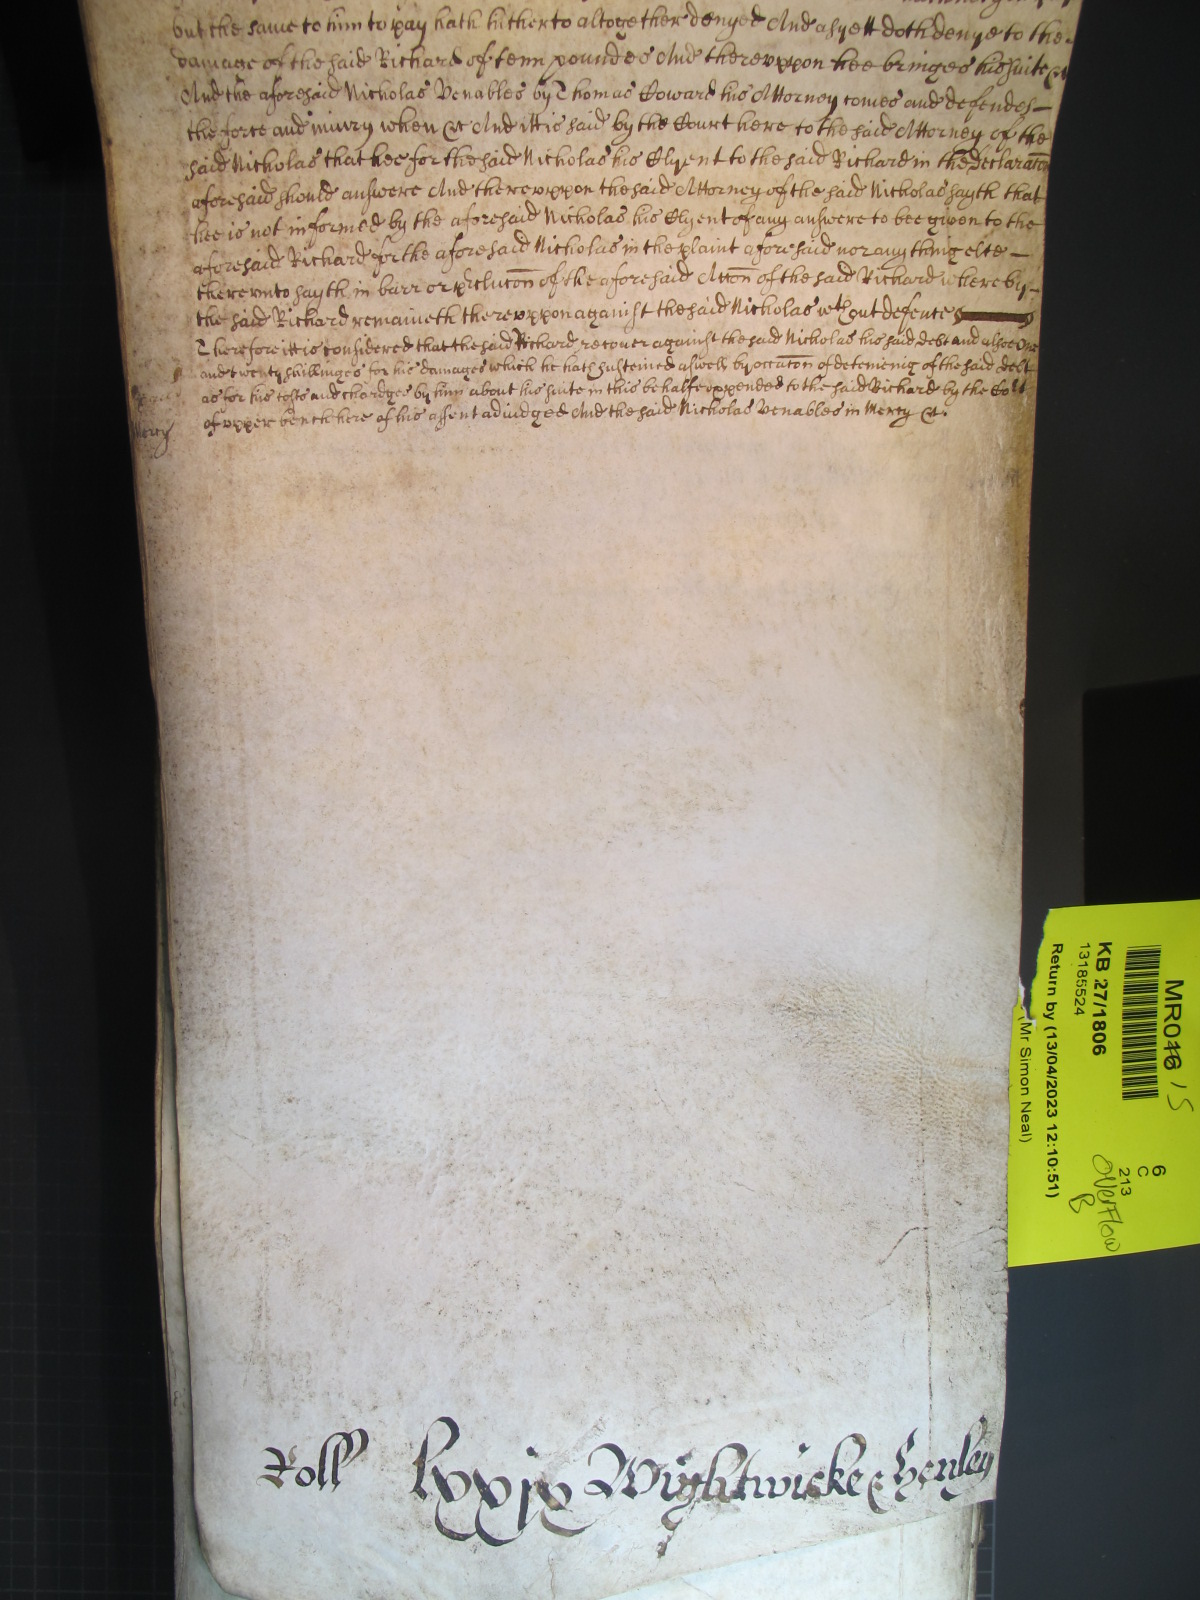 but the same to him to pay hath hitherto altogether denyed And as yett doth denye to the
damage of the said Richard of tenn poundes And thereuppon hee bringes his suite &c
And the aforesaid Nicholas Venables by Thomas Coward his Attorney comes and defendes
the force and iniury when &c And itt is said by the Court here to the said Attorney of the
said Nicholas that hee for the said Nicholas his Clyent to the said Richard in the declaracon
aforesaid should answere And thereuppon the said Attorney of the said Nicholas sayth that
hee is not informed by the aforesaid Nicholas his Clyent of any answere to bee given to the
aforesaid Richard for the aforesaid Nicholas in the plaint aforesaid nor any thing else
thereunto sayth in barr or preclucon of the aforesaid Accon of the said Richard whereby
the said Richard remaineth thereuppon against the said Nicholas wth out defence
Therefore itt is considered that the said Richard recover against the said Nicholas his said debt and alsoe one
and twenty shillinges for his damages which he hath susteined aswell by occacon of deteineig of the said debt
as for his costs and chardges by him about his suite in this behalfe expended to the said Richard by the Cort
of upper bench here of his assent adiudged And the said Nicholas Venables in Mercy &c.
Mercy
Roll lxxix Wightwicke & Henley
MR016 15
KB 27/1806
13185524
Return by (13/04/2023 12:10:51)
(Mr Simon Neal)
6
C
213
Overflow
B